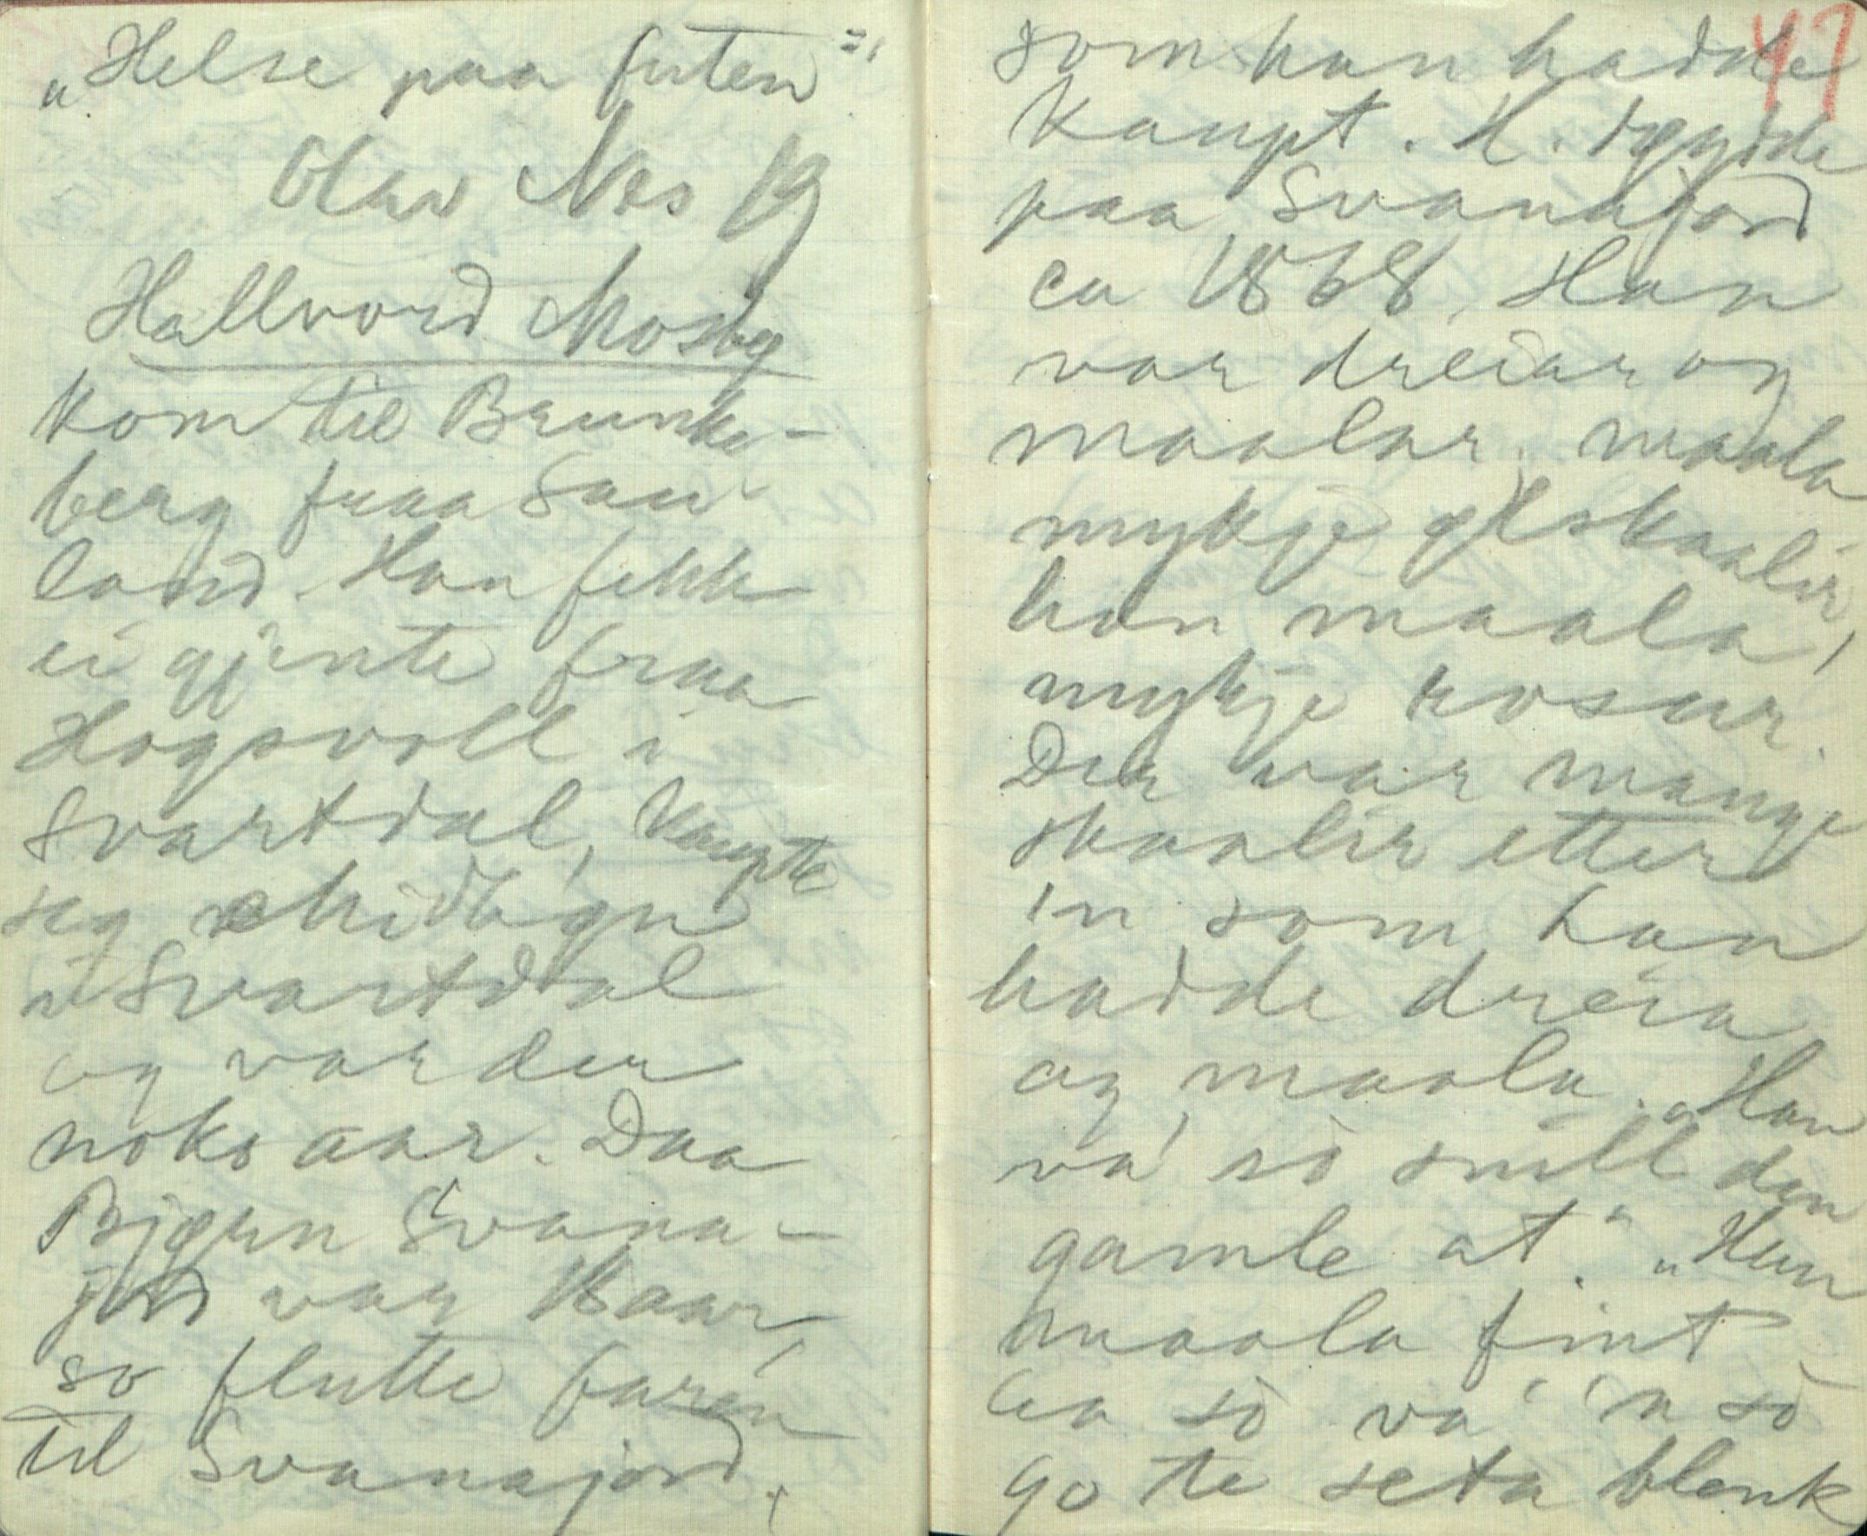 „Helse paa futen"
Olav Nes 19
Hallvord Mosbø
kom til Brunke-
berg fraa Sau-
land. Han fekk
ei gjente fraa
Hogsvoll i
Svartdal, kaupte
seg
i Svartdal
og var der
noko aar. Daa
Bjørn Svana-
jord var
so flutte
til Svanajord,
47
som han hadde
kaupt. H. døydde
paa Svanajord
ca 1868. Han
var dreiar og
maalar, maala
mykje ølskaalir,
han maala,
mykje rosur.
Der var mange
skaalir etter
'n som han
hadde dreia
og maala. „Han
va' so snill den
gamle at." „Han
maala fint
aa so va' 'n so
go te seta blenk